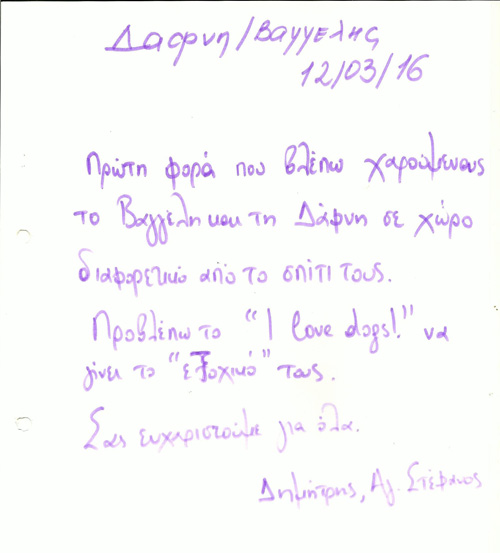 Δαφνη/Βαγγελης
12/03/16
Πρώτη φορά που βλέπω χαρούμενους
το Βαγγέλη και τη Δάφνη σε χώρο
διαφορετικό από το σπίτι τους.
Προβλέπω το "I love dogs!" να
γίνει το "εξοχικό" τους.
Σας ευχαριστούμε για όλα.
Δημήτρης, Αγ. Στέφανος